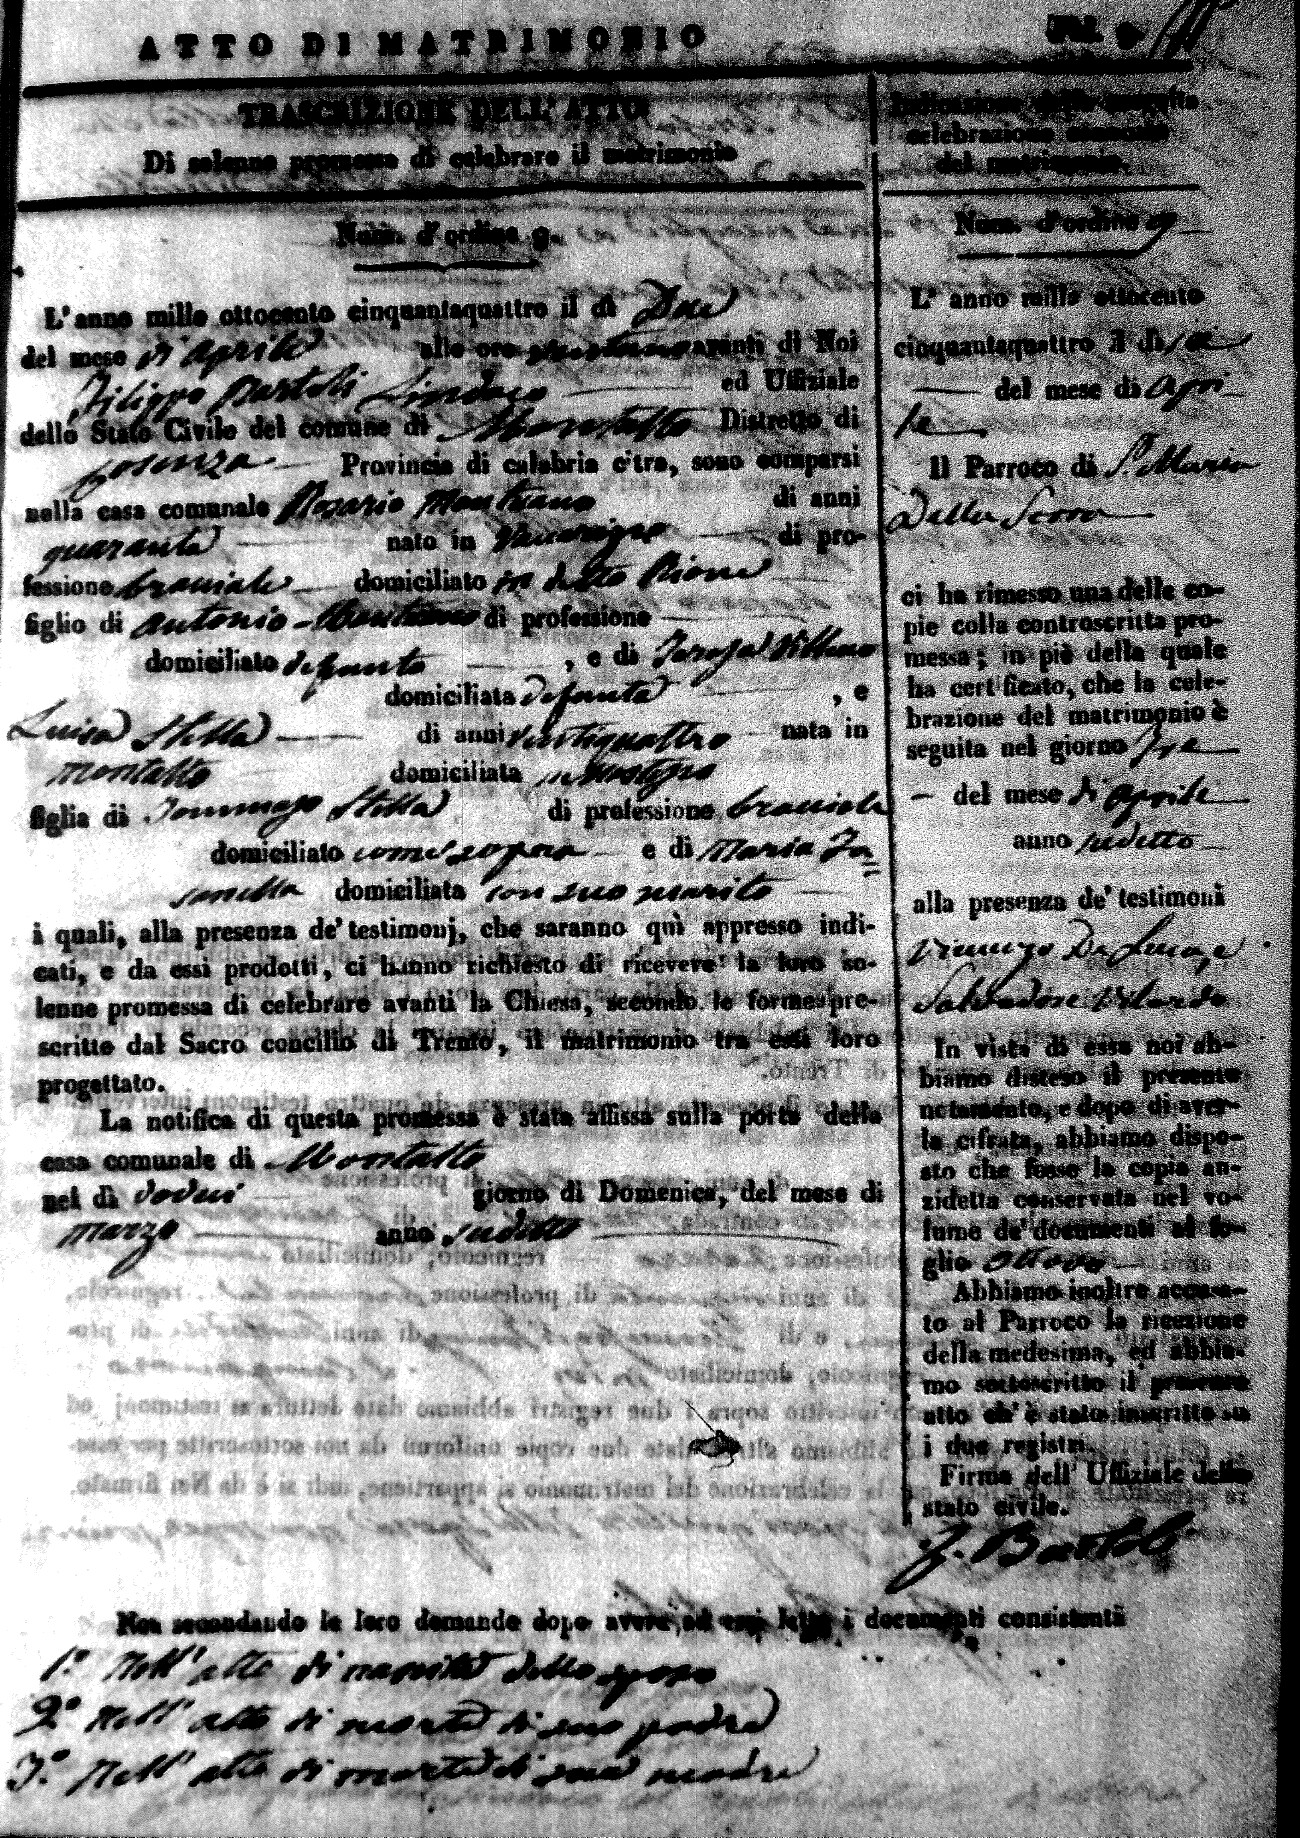 ATTO DI MATRIMONIO
TRASCRIZIONE DELL' ATTO
Di solenne promessa di celebrare il matrimonio
Num. d'ordine 9.
L'anno mille ottocento cinquantaquattro il dì Due
del mese di Aprile alle ore avanti di Noi
Filippo Bartoli Sindaco ed Uffiziale
dello Stato Civile del comune di Montalto Distretto di
Cosenza Provincia di calabria citra, sono comparsi
nella casa comunale Rosario di anni
quaranta nato in di pro-
fessione bracciale domiciliato in detto
figlio di Antonio di professione
domiciliato defunto , e di Teresa
domiciliata defunta , e
Luisa Stella di anni ventiquattro nata in
Montalto domiciliata
figlia di Tommaso Stella di professione bracciale
domiciliato come sopra e di Maria
domiciliata con suo marito
i quali, alla presenza de' testimonj, che saranno quì appresso indi-
cati, e da essi prodotti, ci hanno richiesto di ricevere la loro so-
lenne promessa di celebrare avanti la Chiesa, secondo le forme pre-
scritte dal Sacro concilio di Trento, il matrimonio tra essi loro
progettato.
La notifica di questa promessa è stata affissa sulla porta della
casa comunale di Montalto
nel dì dodici giorno di Domenica, del mese di
marzo anno sudetto
Noi secondando le loro domande dopo avere ad essi letto i documenti consistenti
1.° Nell' atto di nascita dello sposo
2.° Nell' atto di morte di suo padre
3.° Nell' atto di morte di sua madre
Indicazione della seguita
celebrazione canonica
del matrimonio.
Num. d'ordine 9
L' anno mille ottocento
cinquantaquattro il dì
del mese di Apri-
le
Il Parroco di S. Maria
Della Serra
ci ha rimesso una delle co-
pie colla controscritta pro-
messa; in piè della quale
ha certificato, che la cele-
brazione del matrimonio è
seguita nel giorno Tre
del mese di Aprile
anno sudetto
alla presenza de' testimoni
Vincenzo De
Salvadore Vilardo
In vista di essa noi ab-
biamo disteso il presente
notamento, e dopo di aver-
la cifrata, abbiamo dispo-
sto che fosse la copia an-
zidetta conservata nel vo-
lume de' documenti al fo-
glio ottavo
Abbiamo inoltre accusa-
to al Parroco la ricezione
della medesima, ed abbia-
mo sottoscritto il presente
atto ch' è stato inscritto su
i due registri.
Firma dell' Uffiziale dello
stato civile.
F. Bartoli